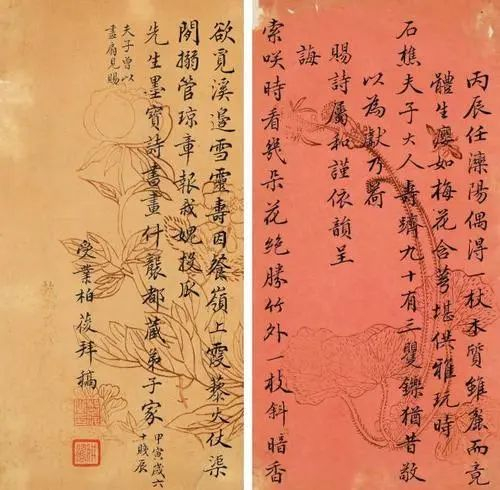 丙辰任灤陽偶得一杖本質雖麤而竟
體生癭如梅花含萼堪供雅玩時
石樵夫子大人壽躋九十有三矍鑠猶昔敬
以為獻乃荷
賜詩屬和謹依韻呈
誨
索咲時看幾朵花絕勝竹外一枝斜暗香
欲覓溪邊雪靈壽因餐嶺上霞藜火仗渠
閒搦管瓊章報我媿投瓜
先生墨寶詩書畫什襲都藏弟子家
甲寅歲六
十賤辰
夫子曾以
畫扇見賜
受業柏葰拜稿